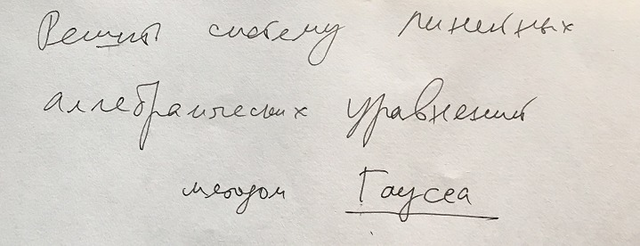 Решить систему линейных
алгебраических уравнений
методом Гаусса